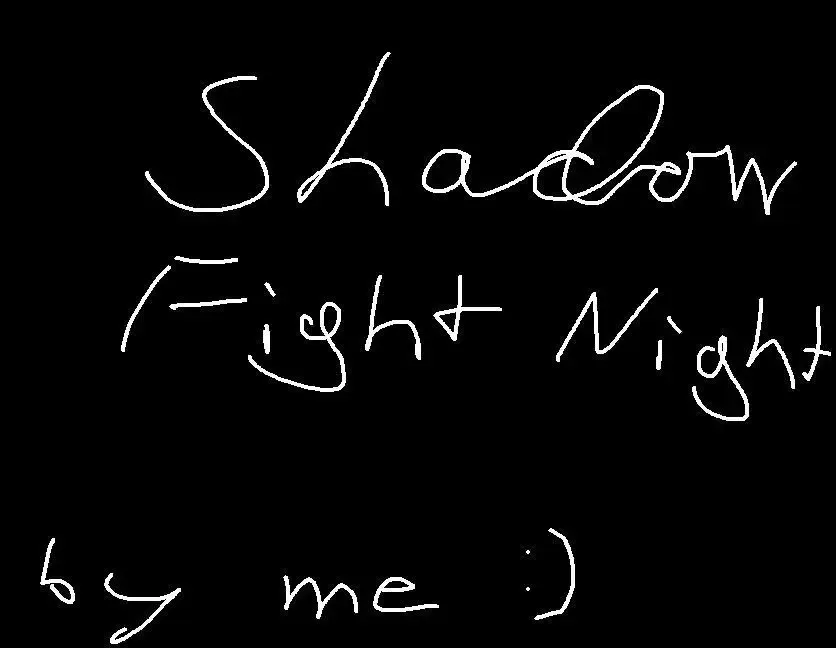 Shadow
Fight Night
by me :)